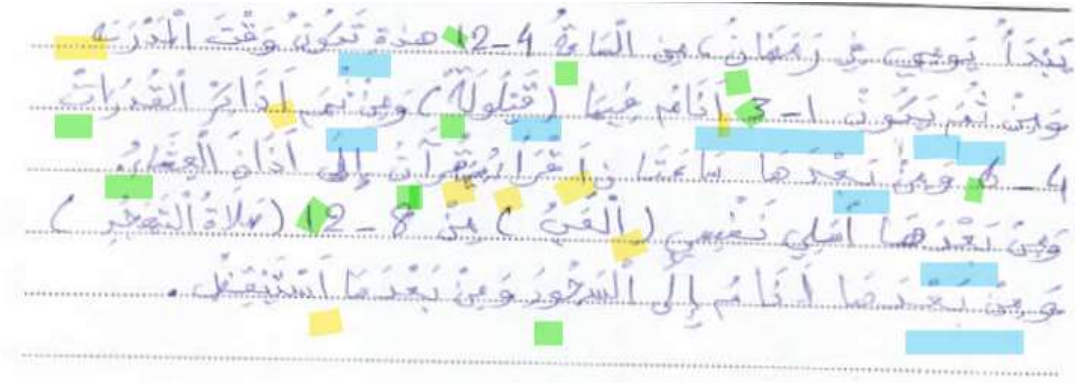 يَبْدَأُ يَومِي فِي رَمَضَان، مِن السَاعَةُ 4-12 هذة تَكُون وَقْتَ الْمَدْرَسَه
وَمِنْ ثَمَ يَكُون 1-3 أَنَام فِيهَا (قَيْلُولَة) وَمِنْ ثمَ أَذَاكِرْ القُدُرَاتْ
4-6 وَمِنْ بَعْدَهَا سَاعَتًا اقْرَأ إِلَى اَذَان العِشَاء.
وَمِنْ بَعْدَهَا اسَلِي نَفْسِي ( ) مِنْ 8-12 (صَلاةُ التَهَجُدِ)
وَمِنْ بَعْدَهَا أَنَامُ إِلَى السَحُور وَمِنْ بَعْدَهَا اَسْتَيْقِظُ.